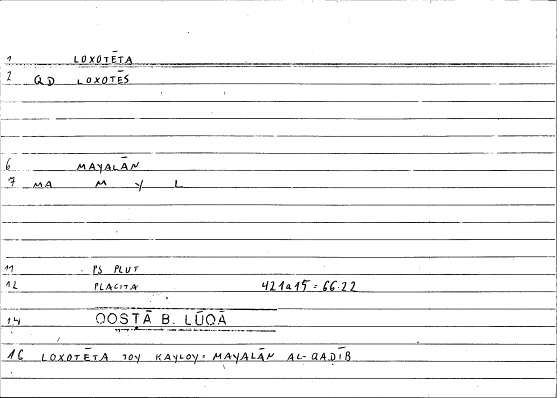 1 LOXOTĒTA
2 QD LOXOTĒS
6 MAYALĀN
7 MA M Y L
11 PS PLUT
12 PLACITA 421a15 = 66.22
14 QOSTĀ B. LŪQĀ
16 LOXOTĒTA TOY KAYLOY = MAYALĀN AL-QADĪB